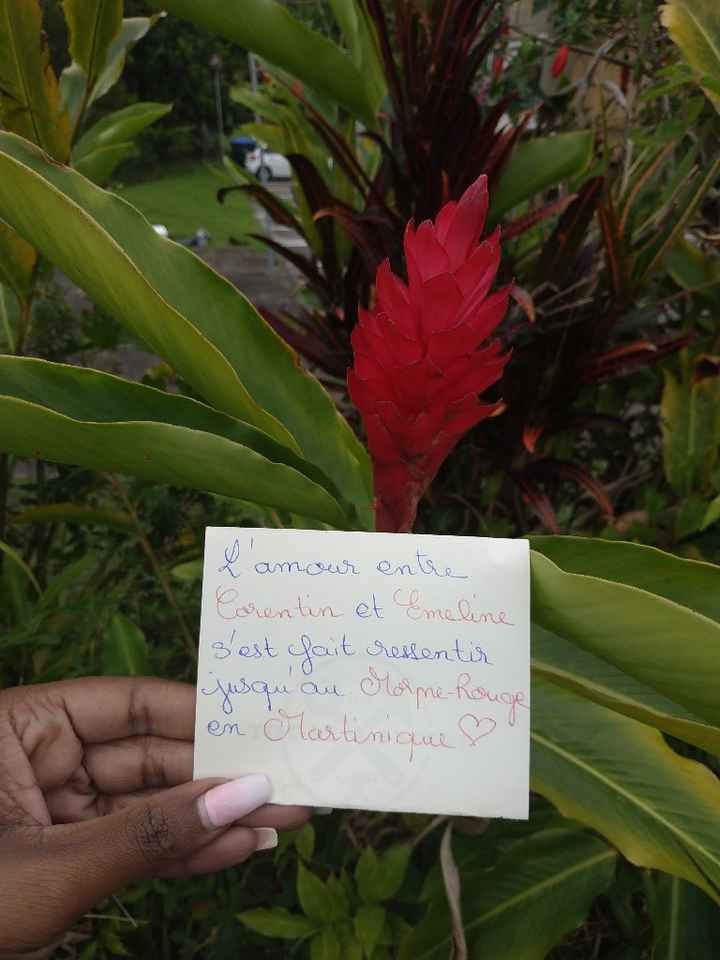 L'amour entre
Corentin et Emeline
s'est fait ressentir
jusqu'au Morne-Rouge
en Martinique ♡